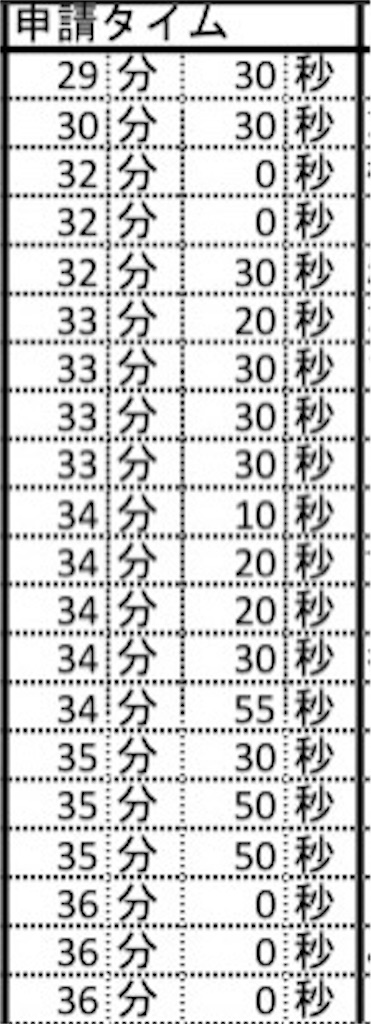 申請タイム
29 分 30 秒
30 分 30 秒
32 分 0 秒
32 分 0 秒
32 分 30 秒
33 分 20 秒
33 分 30 秒
33 分 30 秒
33 分 30 秒
34 分 10 秒
34 分 20 秒
34 分 20 秒
34 分 30 秒
34 分 55 秒
35 分 30 秒
35 分 50 秒
35 分 50 秒
36 分 0 秒
36 分 0 秒
36 分 0 秒